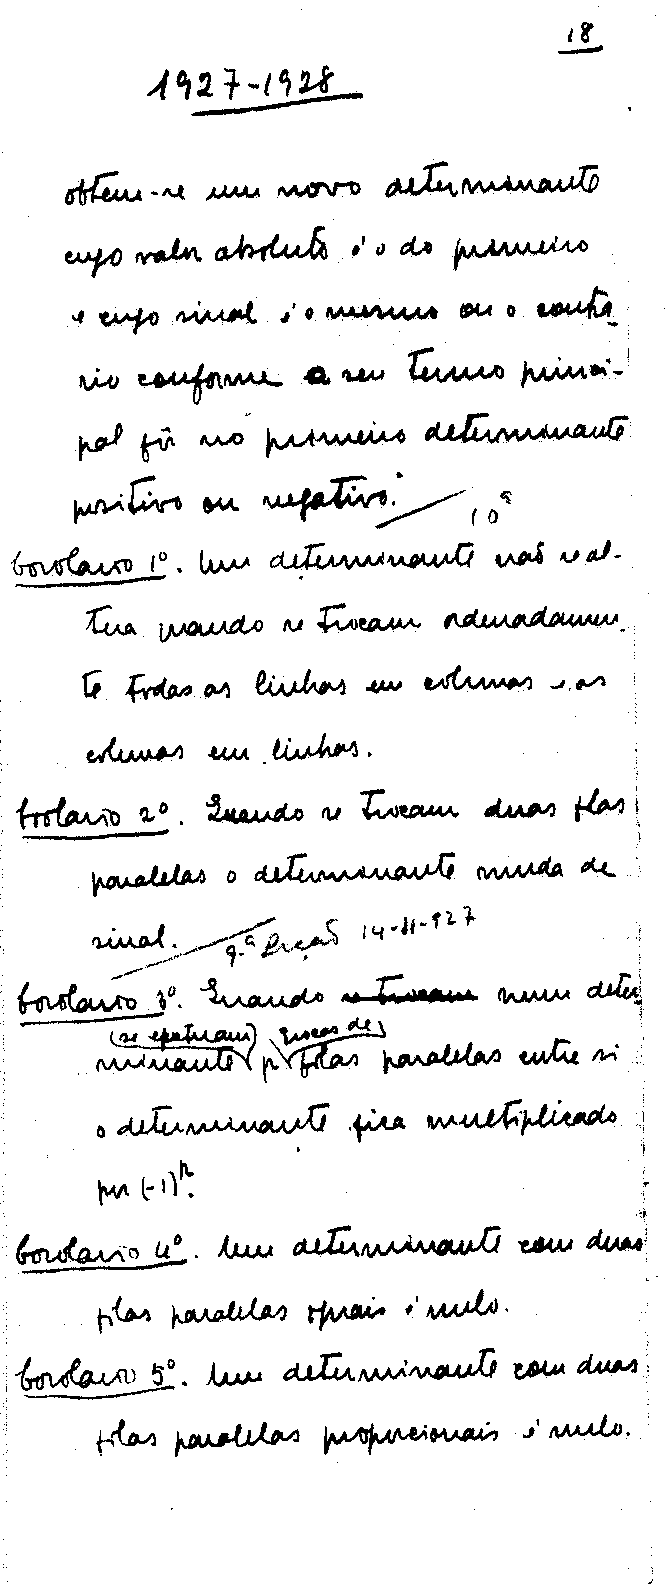 18
1927-1928
obtem-se um novo determinante
cujo valor absoluto é o do primeiro
e cujo sinal é o mesmo ou o contrá-
rio conforme o seu termo princi-
pal fôr no primeiro determinante
positivo ou negativo.
10ª
Corolario 1º. Um determinante não se al-
tera quando se trocam ordenadamen-
te todas as linhas em colunas e as
colunas em linhas.
Corolario 2º. Quando se trocam duas filas
paralelas o determinante muda de
sinal.
9.ª Lição 14-11-927
Corolario 3º. Quando se trocam num deter-
(se efetuam) trocas de
minante p filas paralelas entre si
o determinante fica multiplicado
por (-1)ᵖ.
Corolario 4º. Um determinante com duas
filas paralelas iguais é nulo.
Corolario 5º. Um determinante com duas
filas paralelas proporcionais é nulo.